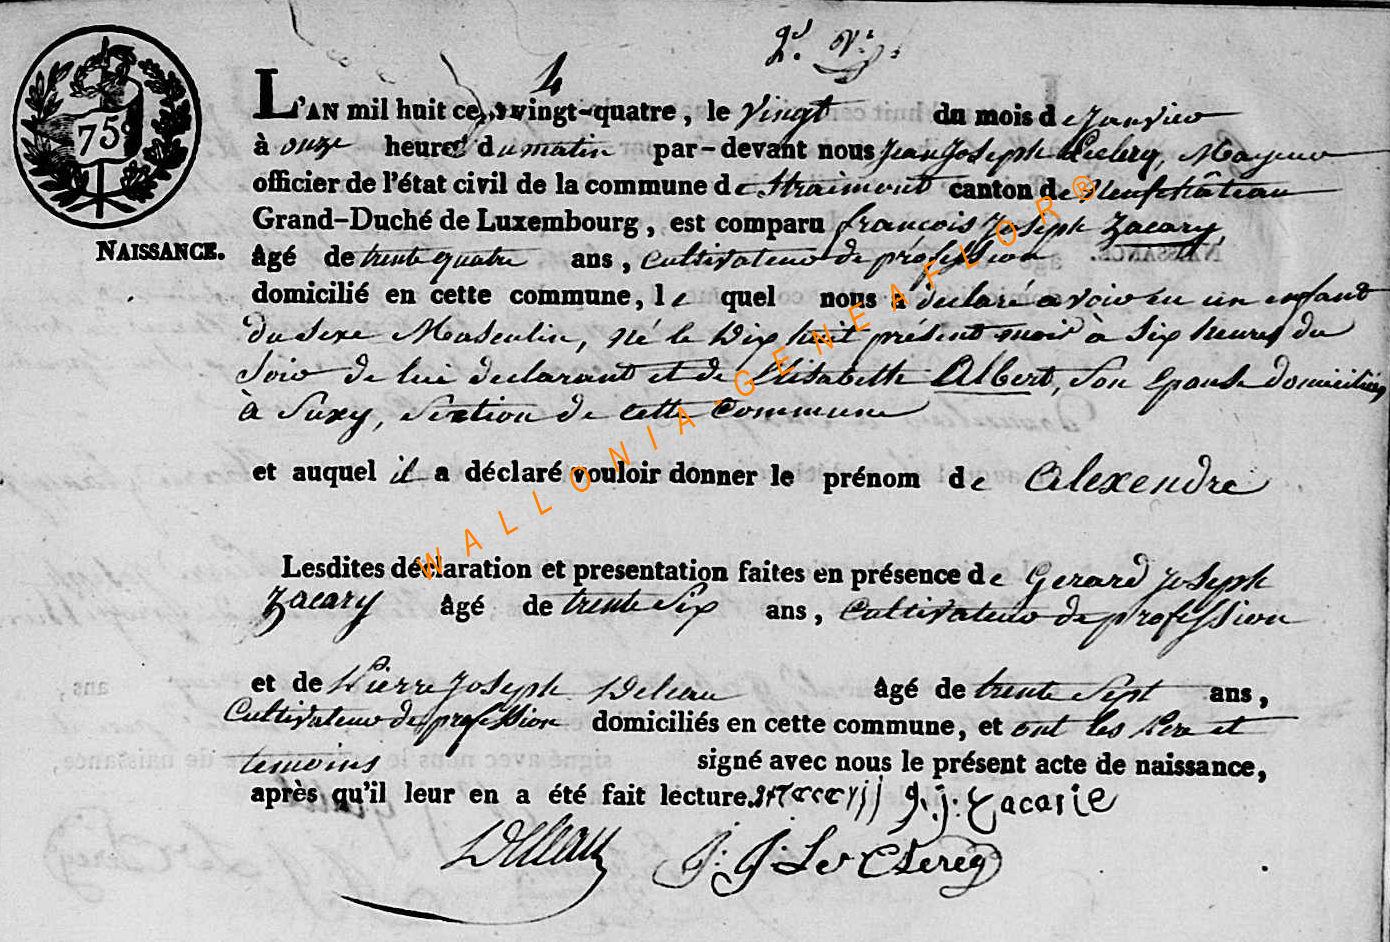 4
75
NAISSANCE.
L'AN mil huit cent vingt-quatre, le Vingt du mois de Janvier
à onze heures du matin par-devant nous Jean Joseph Leclerq, Mayeur
officier de l'état civil de la commune de Straimont canton de Neufchâteau
Grand-Duché de Luxembourg, est comparu francois Joseph Zacary,
âgé de trente quatre ans, cultivateur de profession
domicilié en cette commune, le quel nous a declaré avoir eu un enfant
du sexe Masculin, né le Dix huit présent mois à Six heures du
Soir de lui declarant et de Elisabette Albert, Son Epouse domiciliés
à Suxy, Section de cette Commune
et auquel il a déclaré vouloir donner le prénom de Alexendre
Lesdites déclaration et presentation faites en présence de Gerard Joseph
Zacary âgé de trente Six ans, Cultivateur de profession
et de Pierre Joseph Deleau âgé de trente Sept ans,
Cultivateur de profession domiciliés en cette commune, et ont les Pere et
temoins signé avec nous le présent acte de naissance,
après qu'il leur en a été fait lecture. g. j. Zacarie
Delleau J: J: Le Clereq
WALLONIA-GENEAFLOR®